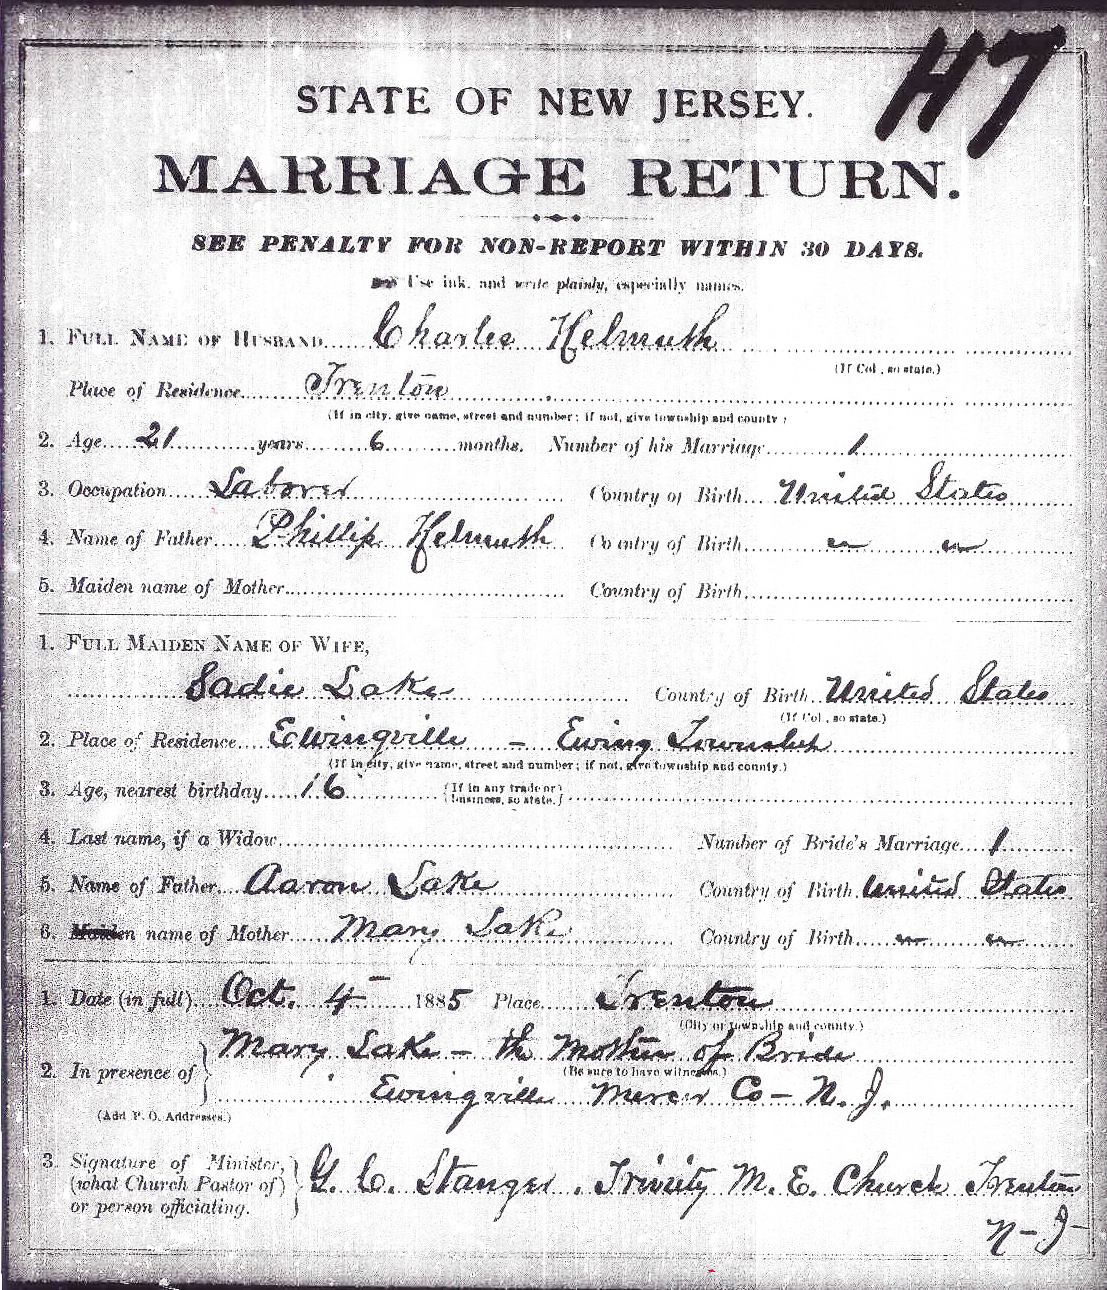 H7
STATE OF NEW JERSEY.
MARRIAGE RETURN.
SEE PENALTY FOR NON-REPORT WITHIN 30 DAYS.
Use ink, and write plainly, especially names.
1. FULL NAME OF HUSBAND Charles Helmuth
(If Col., so state.)
Place of Residence Trenton
(If in city, give name, street and number; if not, give township and county)
2. Age 21 years 6 months. Number of his Marriage 1
3. Occupation Laborer Country of Birth United States
4. Name of Father Phillip Helmuth Country of Birth " "
5. Maiden name of Mother Country of Birth
1. FULL MAIDEN NAME OF WIFE,
Sadie Lake Country of Birth United States
(If Col., so state.)
2. Place of Residence Ewingville – Ewing Township
(If in city, give name, street and number; if not, give township and county.)
3. Age, nearest birthday 16 (If in any trade or
business, so state.)
4. Last name, if a Widow Number of Bride's Marriage 1
5. Name of Father Aaron Lake Country of Birth United States
6. Maiden name of Mother Mary Lake Country of Birth " "
1. Date (in full) Oct. 4 1885 Place Trenton
(City or township and county.)
2. In presence of Mary Lake – the Mother of Bride
(Be sure to have witnesses.)
Ewingville Mercer Co – N. J.
(Add P. O. Addresses.)
3. Signature of Minister,
(what Church Pastor of) G. C. Stanger. Trinity M. E. Church Trenton
or person officiating. N – J –